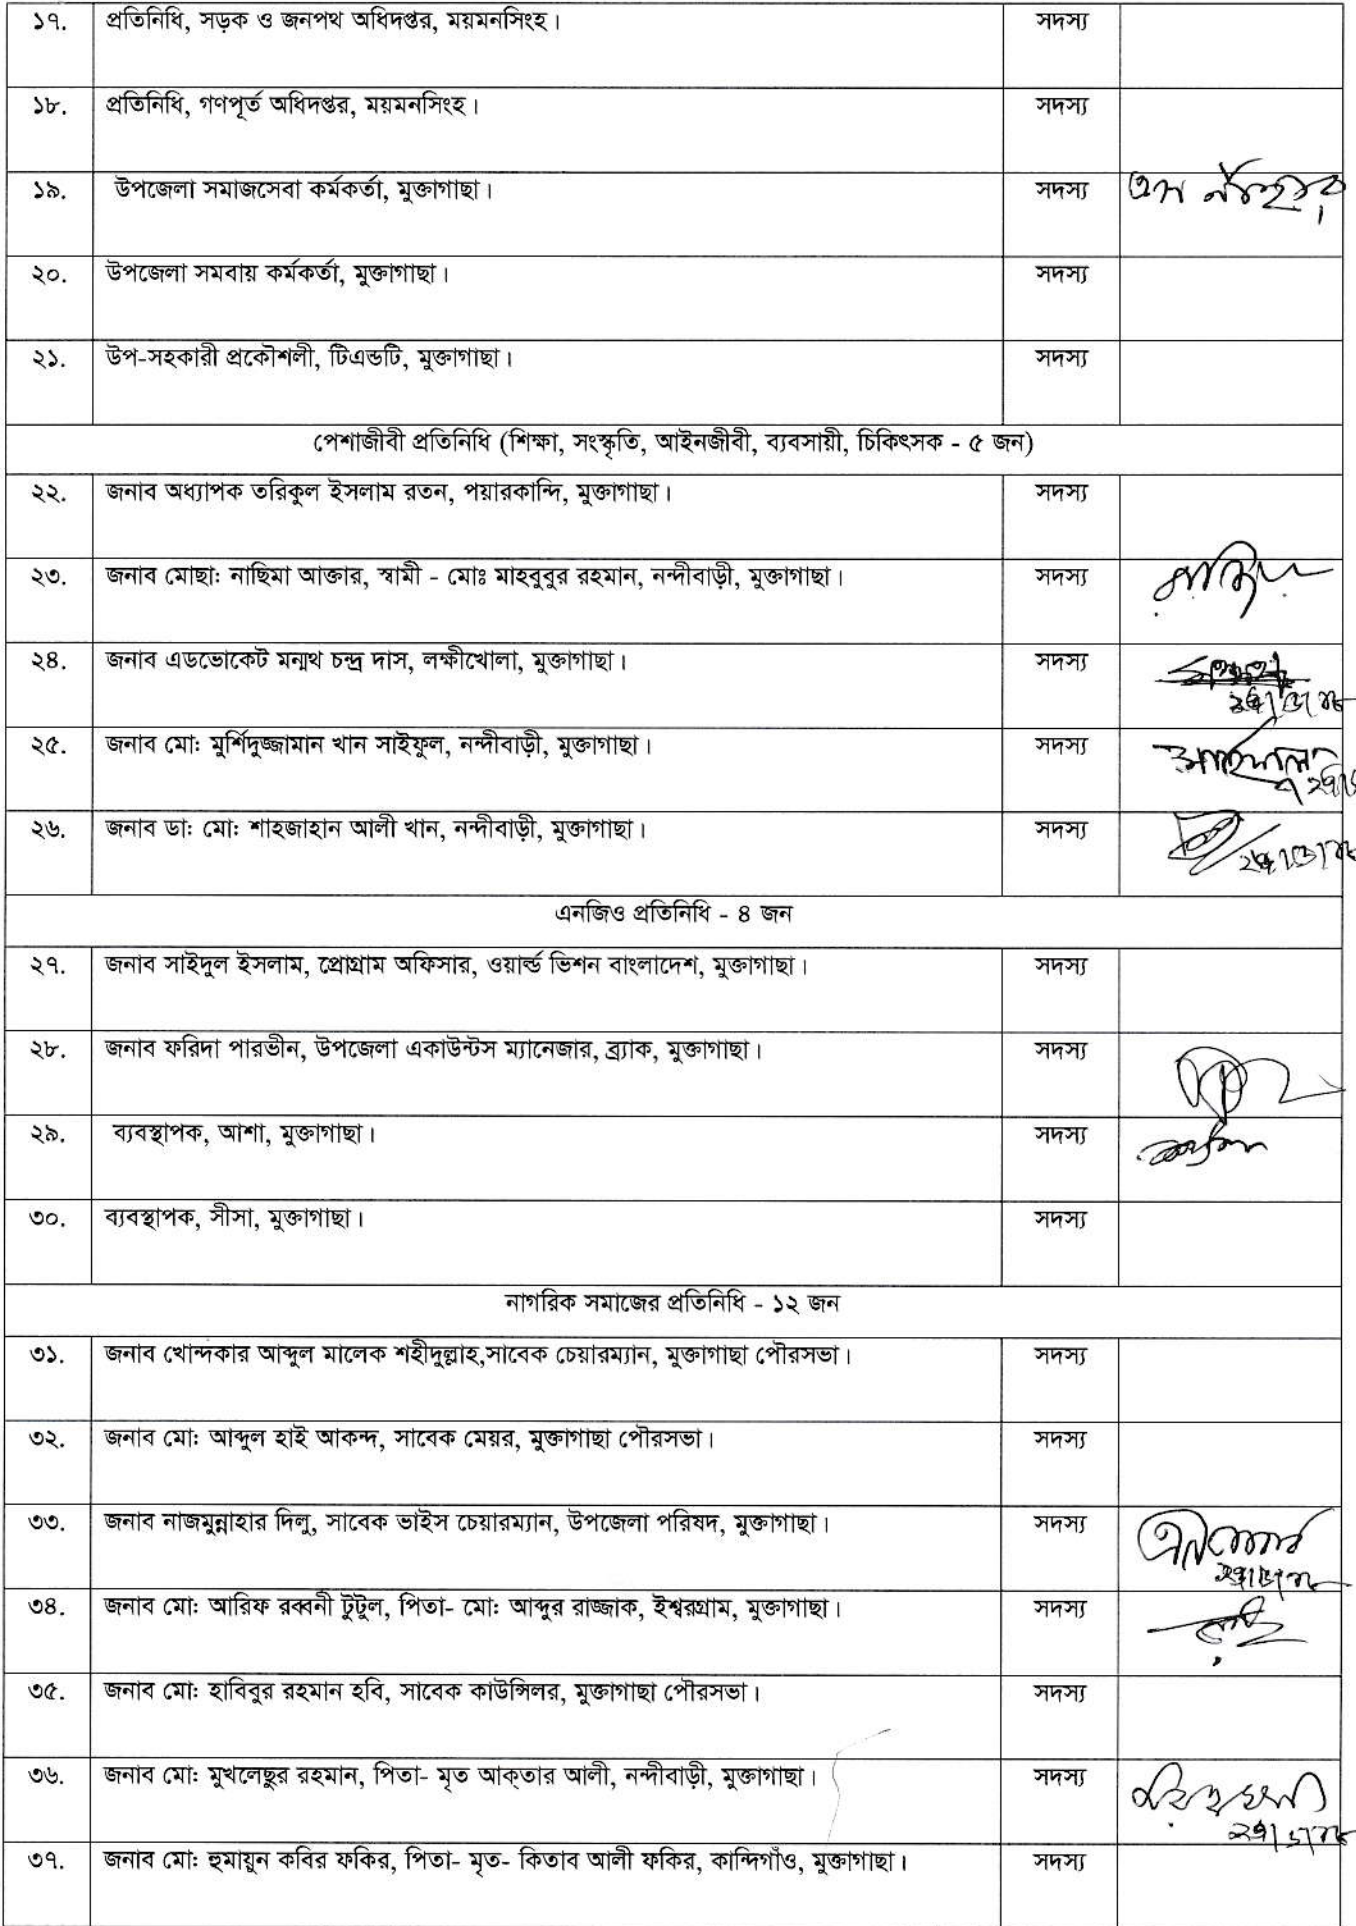 ১৭. প্রতিনিধি, সড়ক ও জনপথ অধিদপ্তর, ময়মনসিংহ। সদস্য
১৮. প্রতিনিধি, গণপূর্ত অধিদপ্তর, ময়মনসিংহ। সদস্য
১৯. উপজেলা সমাজসেবা কর্মকর্তা, মুক্তাগাছা। সদস্য
২০. উপজেলা সমবায় কর্মকর্তা, মুক্তাগাছা। সদস্য
২১. উপ-সহকারী প্রকৌশলী, টিএন্ডটি, মুক্তাগাছা। সদস্য
পেশাজীবী প্রতিনিধি (শিক্ষা, সংস্কৃতি, আইনজীবী, ব্যবসায়ী, চিকিৎসক - ৫ জন)
২২. জনাব অধ্যাপক তরিকুল ইসলাম রতন, পয়ারকান্দি, মুক্তাগাছা। সদস্য
২৩. জনাব মোছা: নাছিমা আক্তার, স্বামী - মোঃ মাহবুবুর রহমান, নন্দীবাড়ী, মুক্তাগাছা। সদস্য
২৪. জনাব এডভোকেট মন্মথ চন্দ্র দাস, লক্ষীখোলা, মুক্তাগাছা। সদস্য
২৫. জনাব মো: মুর্শিদুজ্জামান খান সাইফুল, নন্দীবাড়ী, মুক্তাগাছা। সদস্য
২৬. জনাব ডা: মো: শাহজাহান আলী খান, নন্দীবাড়ী, মুক্তাগাছা। সদস্য
এনজিও প্রতিনিধি - ৪ জন
২৭. জনাব সাইদুল ইসলাম, প্রোগ্রাম অফিসার, ওয়ার্ল্ড ভিশন বাংলাদেশ, মুক্তাগাছা। সদস্য
২৮. জনাব ফরিদা পারভীন, উপজেলা একাউন্টস ম্যানেজার, ব্র্যাক, মুক্তাগাছা। সদস্য
২৯. ব্যবস্থাপক, আশা, মুক্তাগাছা। সদস্য
৩০. ব্যবস্থাপক, সীসা, মুক্তাগাছা। সদস্য
নাগরিক সমাজের প্রতিনিধি - ১২ জন
৩১. জনাব খোন্দকার আব্দুল মালেক শহীদুল্লাহ,সাবেক চেয়ারম্যান, মুক্তাগাছা পৌরসভা। সদস্য
৩২. জনাব মো: আব্দুল হাই আকন্দ, সাবেক মেয়র, মুক্তাগাছা পৌরসভা। সদস্য
৩৩. জনাব নাজমুন্নাহার দিলু, সাবেক ভাইস চেয়ারম্যান, উপজেলা পরিষদ, মুক্তাগাছা। সদস্য
৩৪. জনাব মো: আরিফ রব্বনী টুটুল, পিতা- মো: আব্দুর রাজ্জাক, ইশ্বরগ্রাম, মুক্তাগাছা। সদস্য
৩৫. জনাব মো: হাবিবুর রহমান হবি, সাবেক কাউন্সিলর, মুক্তাগাছা পৌরসভা। সদস্য
৩৬. জনাব মো: মুখলেছুর রহমান, পিতা- মৃত আক্তার আলী, নন্দীবাড়ী, মুক্তাগাছা। সদস্য
৩৭. জনাব মো: হুমায়ুন কবির ফকির, পিতা- মৃত- কিতাব আলী ফকির, কান্দিগাঁও, মুক্তাগাছা। সদস্য